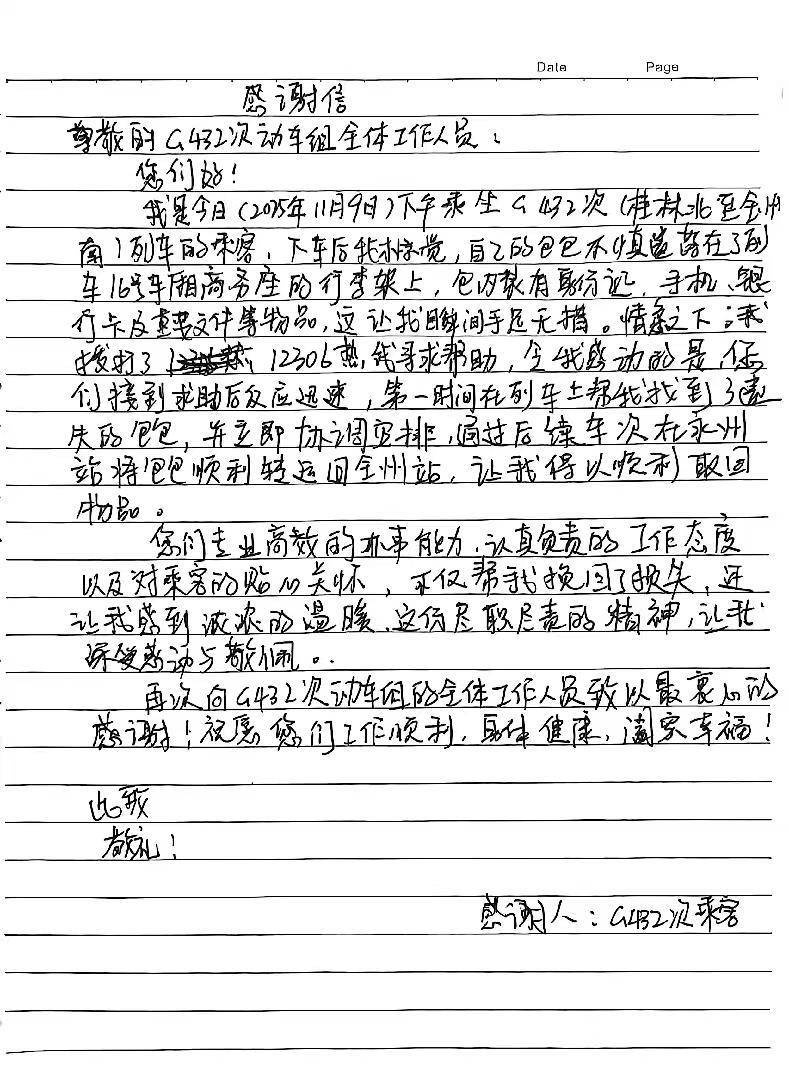 Date Page
感谢信
尊敬的G432次动车组全体工作人员：
您们好！
我是今日(2025年11月9日)下午乘坐G432次(桂林北至全州
南)列车的乘客，下车后我才惊觉，自己的包包不慎遗落在了列
车16号车厢商务座的行李架上，包内装有身份证、手机、银
行卡及重要文件等物品，这让我瞬间手足无措。情急之下，我
拨打了12306热线寻求帮助，令我感动的是，您
们接到求助后反应迅速，第一时间在列车上帮我找到了遗
失的包包，并立即协调安排，通过后续车次在永州
站将包包顺利转运回全州站，让我得以顺利取回
物品。
您们专业高效的办事能力、认真负责的工作态度
以及对乘客的贴心关怀，不仅帮我挽回了损失，还
让我感到浓浓的温暖，这份尽职尽责的精神，让我
深受感动与敬佩。
再次向G432次动车组的全体工作人员致以最衷心的
感谢！祝愿您们工作顺利，身体健康，阖家幸福！
此致
敬礼！
感谢人：G432次乘客